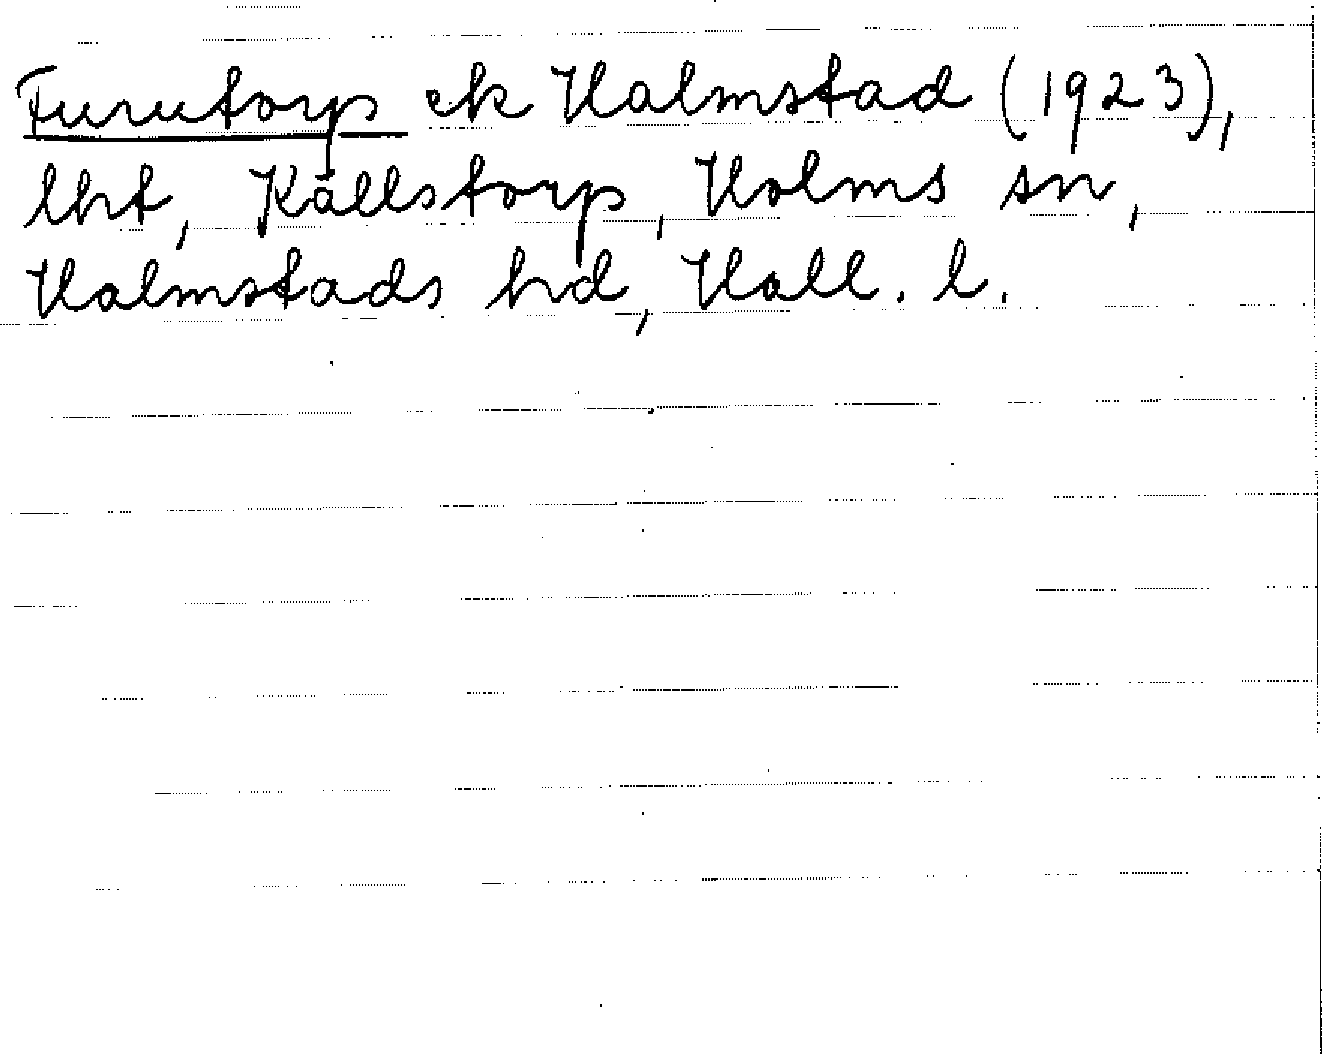 Furutorp ek Halmstad (1923),
lht, Källstorp, Holms sn,
Halmstads hd, Hall. l.